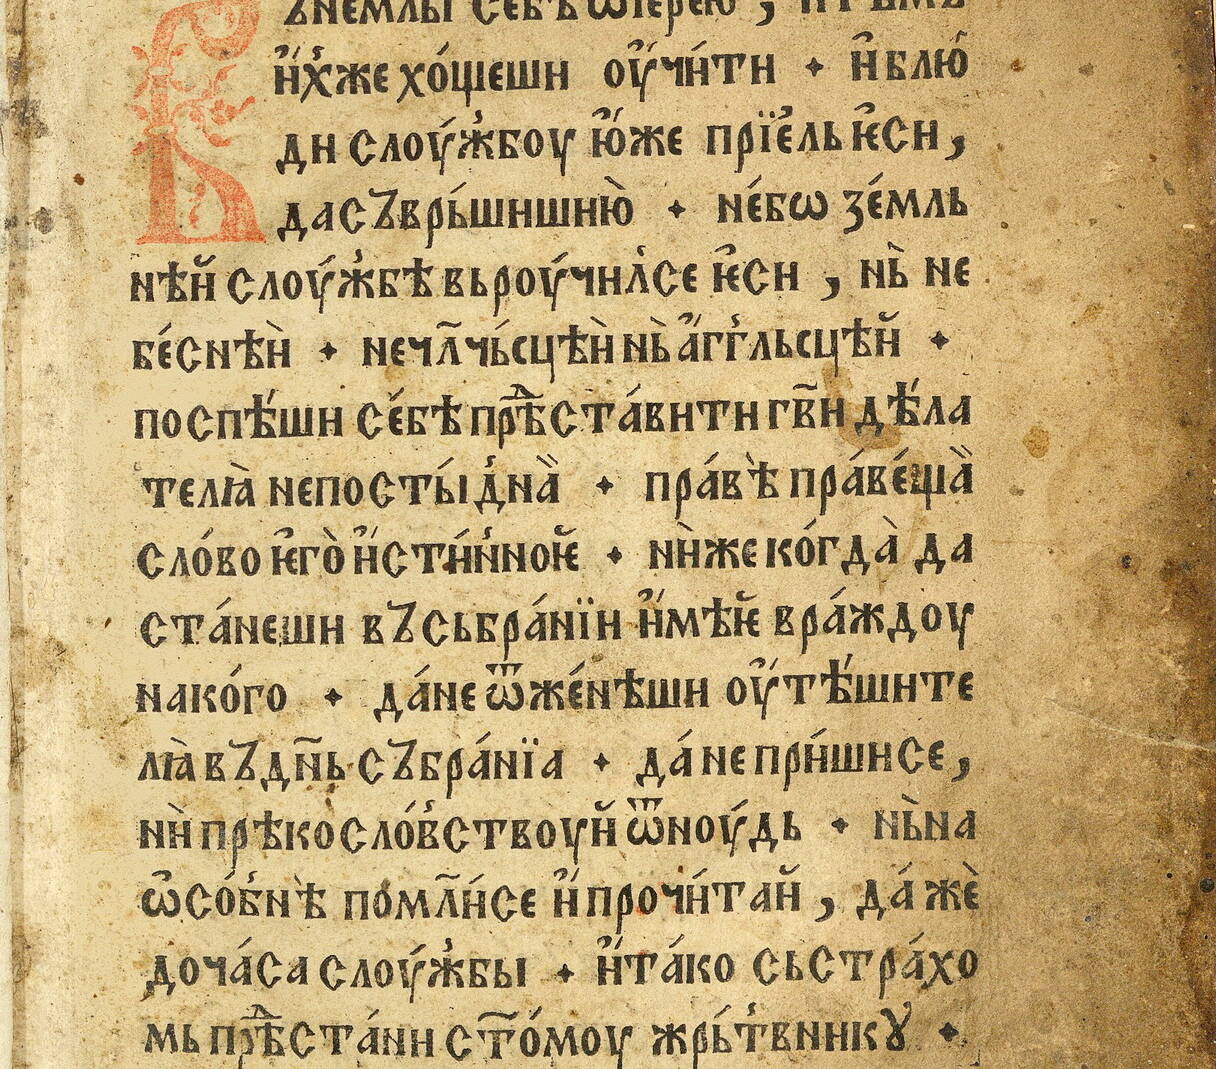 ънемлы себѣ ѡ҆ іерею , и҆ тѣмъ
и҆́хже хо́щеши оу҆чи́ти ᛭ и҆ блю
ди слоу́жбоу ю҆́же прїе҆ль ѥ҆си ,
да съврь́шиши ю̀ ᛭ не́бѡ зе́мль
нѣи̏ слоу́жбѣ вьроу́чилсе ѥ҆си , нь̀ не
бе́снѣи̏ ᛭ не чл҃чь́сцѣи̏ нь̀ а҆́гг҃льсцѣи̏ ᛭
поспѣ́ши се́бѣ прѣⷣста́вити гв҃и дѣ́ла
телꙗ̀ непосты́дна̏ ᛭ пра́вѣ пра́ве́ща̏
сло́во ѥ҆го̀ и҆́сти́нноѥ ᛭ ни̏же ко́гда̀ да
ста́неши въ сьбра́нїи и҆мѣѥ̏ вра́ждоу
на ко́го ᛭ да́ не ѿже́нѣши оу҆тѣ́шите
лꙗ̀ въ дн҃ь събра́нїа ᛭ да́ не при́шисе ,
ни̏ прѣкосло́вствоуи̏ ѿноу́дь ᛭ нь̀ на
ѡ҆со́бнѣ̀ пómл҃и́се и҆ прочи́таи̏ , да́же̏
до ча́са слоу́жбы ᛭ и҆ та́ко сьстра́хо
мь прѣⷣста́ни ст҃о́моу жрь́твнику ᛭